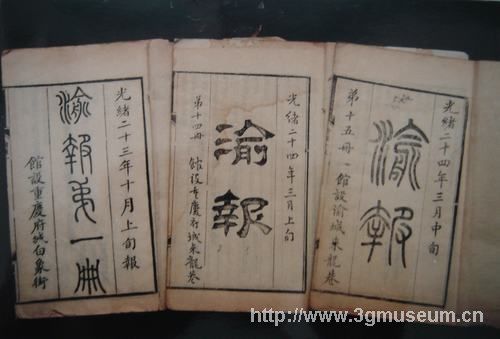 光緒二十三年十月上旬報
渝報第一冊
館設重慶府城白象街
光緒二十四年三月上旬
渝報
第十四冊 館設重慶府城來龍巷
光緒二十四年三月中旬
渝報
第十五冊 館設渝城來龍巷
http://www.3gmuseum.cn